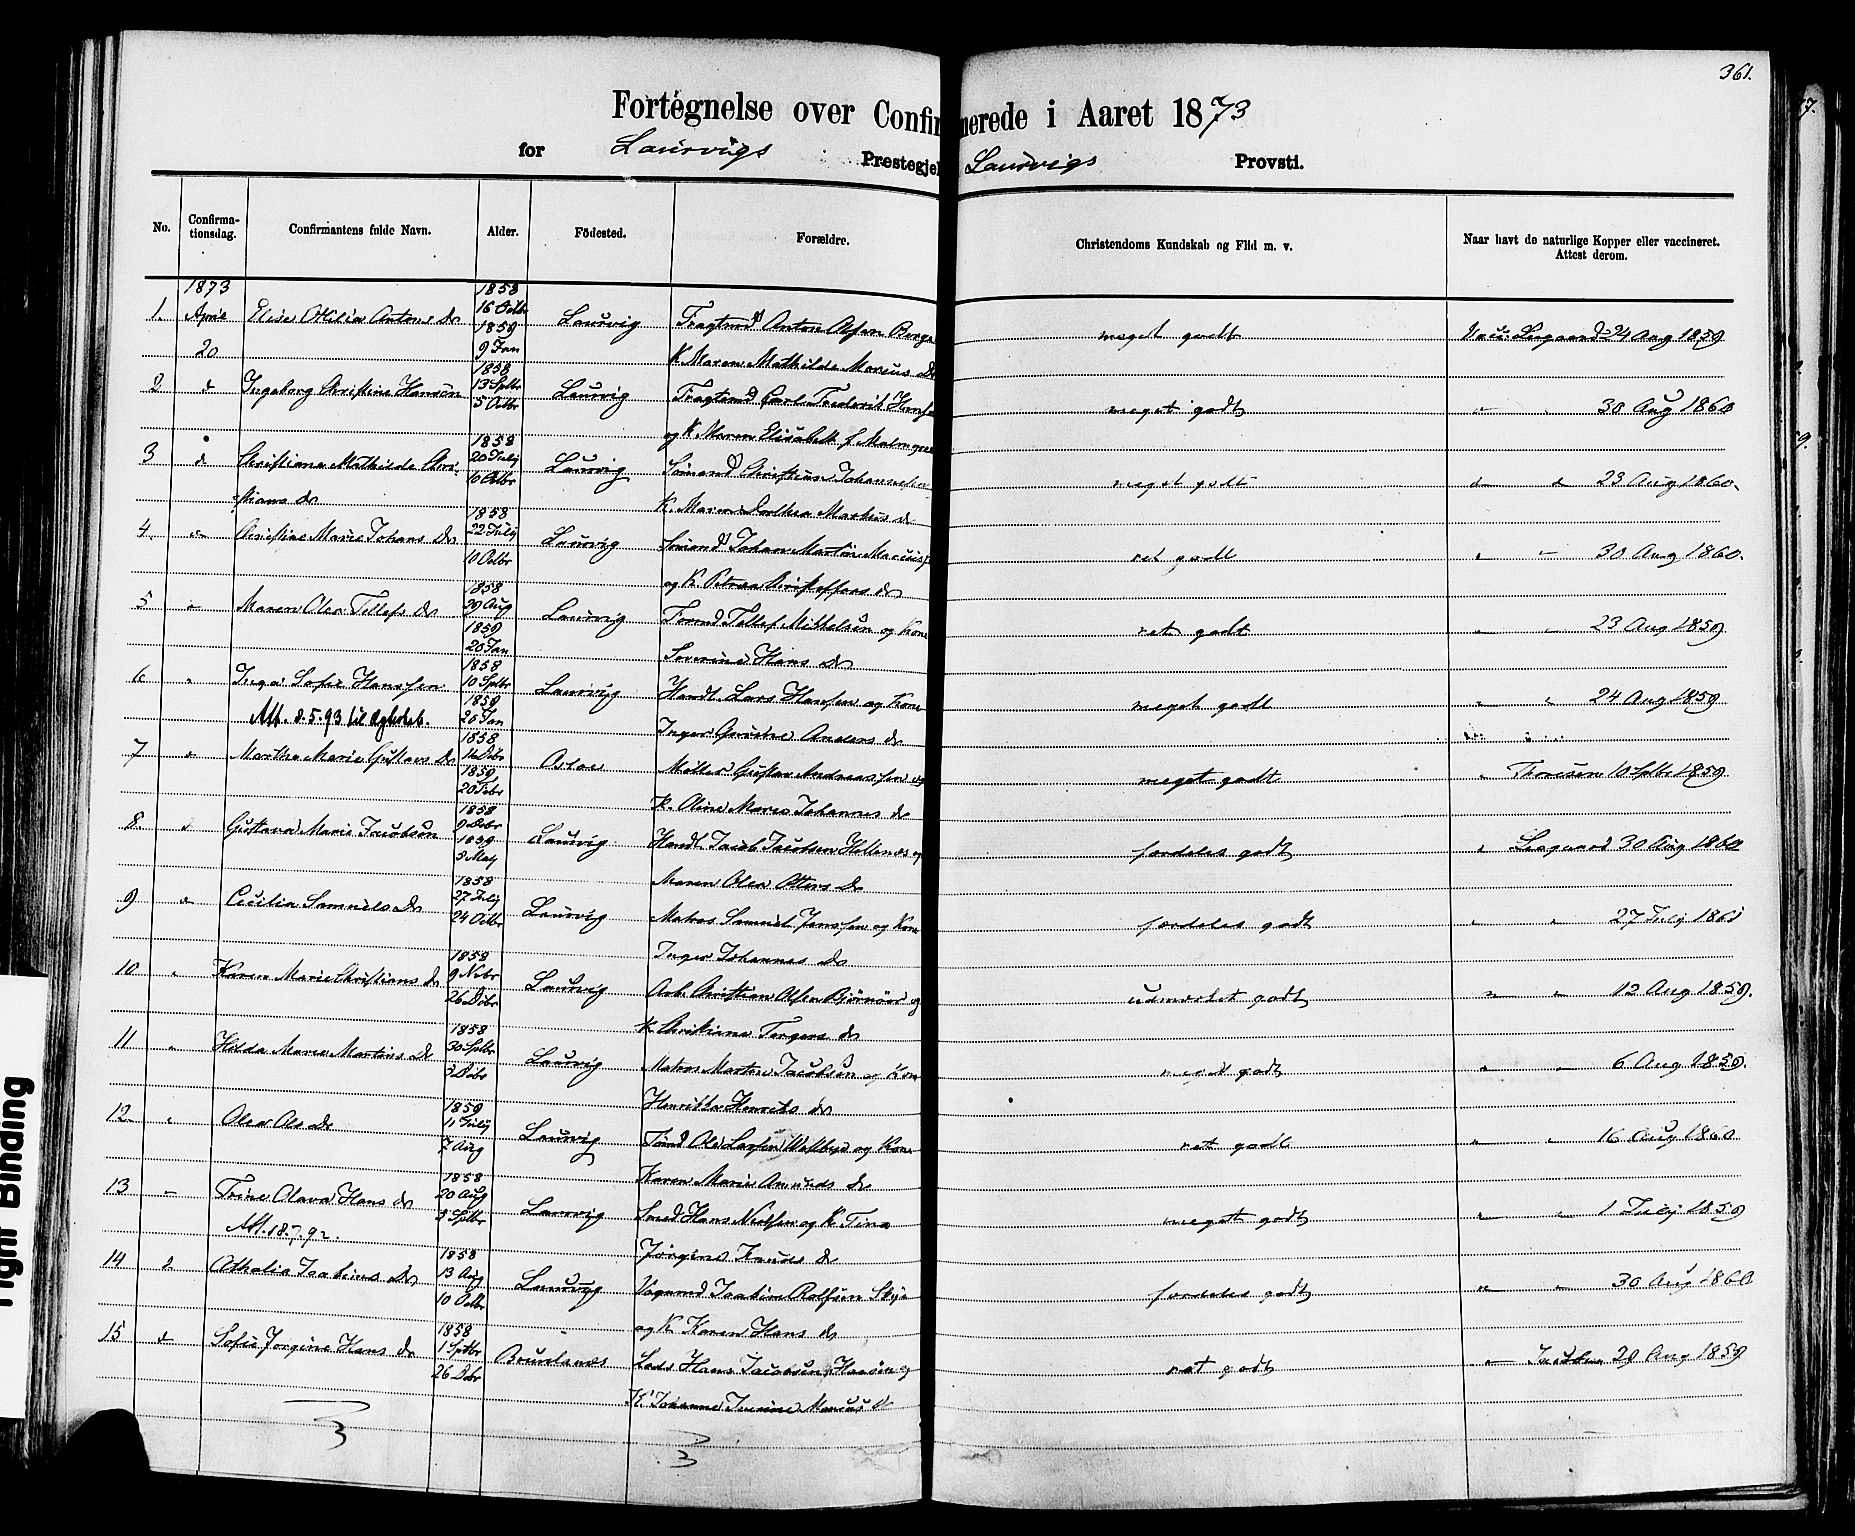 361.
Fortegnelse over Confirmerede i Aaret 1873
for Laurvigs Prestegjel Laurvigs Provsti.
No. Confirma-tionsdag. Confirmantens fulde Navn. Alder. Födested. Forældre. Christendoms Kundskab og Flid m. v. Naar havt de naturlige Kopper eller vaccineret. Attest derom.
1873 1858
1. April Elise Otilia Antons Dr 16 Octbr Laurvig Fragtmd Anton Olsen Berge meget godt Vacc. Segaard 24 Aug 1859
1859
20 9 Jan K. Maren Mathilde Marcus Dr
1858
2 d Ingeborg Christine Hansen 13 Sptbr Laurvig Fragtmd Carl Frederik meget godt " " 30 Aug 1860
5 Octbr
og K. Maren Elisabeth f.
1858
3 d Christiane Mathilde Chri- 20 July Laurvig Sömand Christian Johannesen meget godt " " 23 Aug 1860.
10 Octbr
stians dr K. Maren Dorthea Markus dr
1858
4. " Christine Marie Johans Dr 22 July Laurvig Sömand Johan Martin ret godt " " 30 Aug 1860.
10 Octbr
og K. Petrea Christoffers dr
1858
5 " Maren Olea Tellefs dr 29 Aug Laurvig Tellef Mikkelsen og Kone ret godt " " 23 Aug 1859
1859
20 Jan Severine Hans Dr
1858
6 " Inga Sofie Hanssen 10 Sptbr Laurvig Handl. Lars Hansen og Kone meget godt " " 24 Aug 1859
1859
Att. 8.5.93 til 20 Jan Inger Anders dr
1858
7 " Marthe Marie Gustavs Dr 14 Dcbr Møller Gustav Andreassen og meget godt " Thoresen 10 Sptbr 1859
1859
20 Febr K. Oline Maren Johannes dr
1858
8. d Gustava Marie Jacobsen 9 Laurvig Handl. Jacob Jacobsen og fordeles godt " Seegaard 30 Aug 1860
1859
8 May Maren Olea Dr
1858
9 " Cecilia Samuels Dr 27 July Laurvig Matros Samuel Jenssen og Kone fordeles godt " " 27 July 1861
24 Octbr
Inger Johannes Dr
1858
10 " Karen Marie Christians dr 9 Nvbr Laurvig Arb. Christian Olsen og udmerket godt " " 12 Aug 1859.
26 Dcbr
K. Christiane Torgers dr
1858
11 " Hilda Maren Martins Dr 30 Sptbr Laurvig Matros Martin Jacobsen og Kone meget godt " " 6 Aug 1859.
3 Dcbr
Henrikka Henriks dr
1859
12. " Olea Ols Dr 11 July Laurvig Ole Larsen og Kone ret godt " " 16 Aug 1860
7 Aug
Karen Marie Amunds Dr
1858
13 " Trine Olava Hans dr 20 Aug Laurvig Smed Hans Nielsen og K. Tina meget godt " " 1 July 1859
Att. 18.7.92. 3 Sptbr
Jörgine Knuds Dr
1858
14 d Athalia Joakims Dr 13 Aug Laurvig Joakim Rolfsen fordeles godt " " 30 Aug 1860
10 Octbr
og K. Karen Hans dr
1858
15 d Sofie Jorgine Hans Dr 1 Sptbr Brunlanæs Lods Hans Jacobsen og ret godt " 20 Aug 1859
26 Dcbr
K. Johanne Marcus d
3 3
Tight Binding